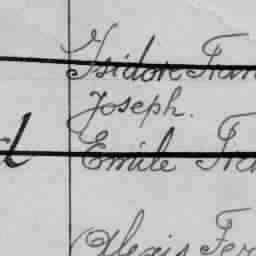 Isidore Fran
Joseph.
Emile Fre
Alexis Fer